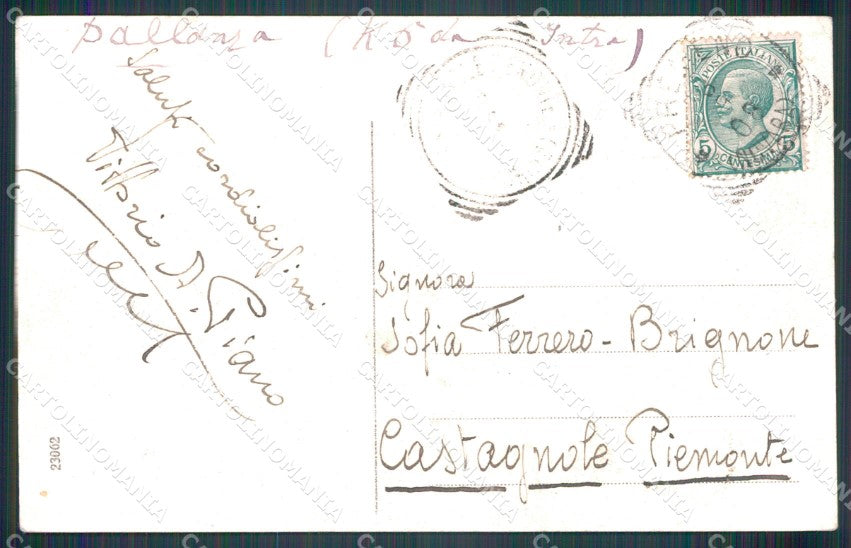 Pallanza ( Kö da Intra)
POSTE ITALIANE
5 CENTESIMI 5
Saluti cordialissimi
Vittorio A. Piano
Signora
Sofia Ferrero-Brignone
Castagnole Piemonte
23002
CARTOLINOMANIA